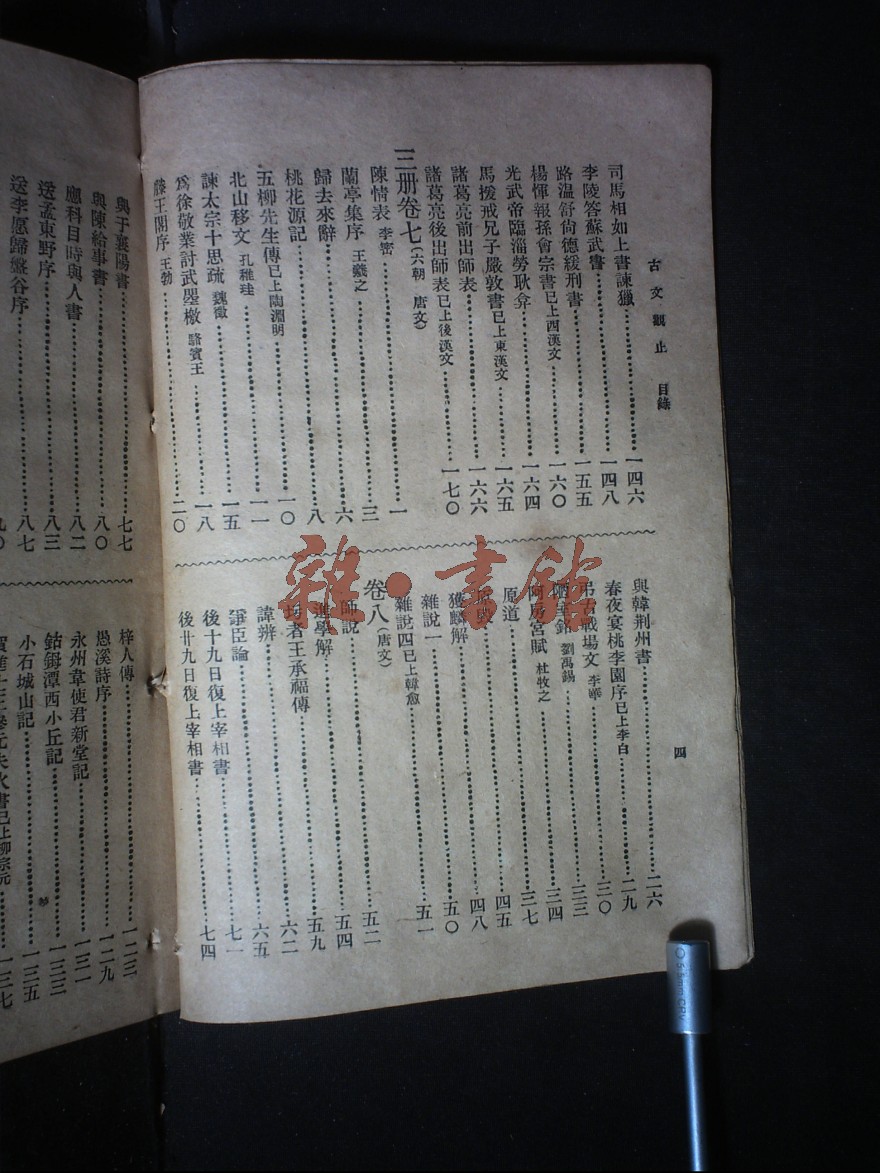 古文觀止 目錄
四
司馬相如上書諫獵……一四六
李陵答蘇武書……一四八
路溫舒尚德緩刑書……一五五
楊惲報孫會宗書已上西漢文……一六〇
光武帝臨淄勞耿弇……一六四
馬援戒兄子嚴敦書已上東漢文……一六五
諸葛亮前出師表……一六六
諸葛亮後出師表已上後漢文……一七〇
三册卷七(六朝 唐文)
陳情表 李密……一
蘭亭集序 王羲之……三
歸去來辭……六
桃花源記……八
五柳先生傳已上陶淵明……一〇
北山移文 孔稚珪……一一
諫太宗十思疏 魏徵……一五
爲徐敬業討武曌檄 駱賓王……一八
滕王閣序 王勃……二〇
與韓荆州書……二六
春夜宴桃李園序已上李白……二九
弔古戰場文 李華……三〇
陋室銘 劉禹錫……三三
阿房宮賦 杜牧之……三四
原道……三七
原毀……四五
獲麟解……四八
雜說一……五〇
雜說四已上韓愈……五一
卷八(唐文)
師說……五二
進學解……五四
圬者王承福傳……五九
諱辨……六二
爭臣論……六五
後十九日復上宰相書……七一
後廿九日復上宰相書……七四
與于襄陽書……七七
與陳給事書……八〇
應科目時與人書……八二
送孟東野序……八三
送李愿歸盤谷序……八七
九〇
梓人傳……一二三
愚溪詩序……一二九
永州韋使君新堂記……一三一
鈷鉧潭西小丘記……一三三
小石城山記……一三五
賀進士王參元失火書已上柳宗元……一三七
雜·書館